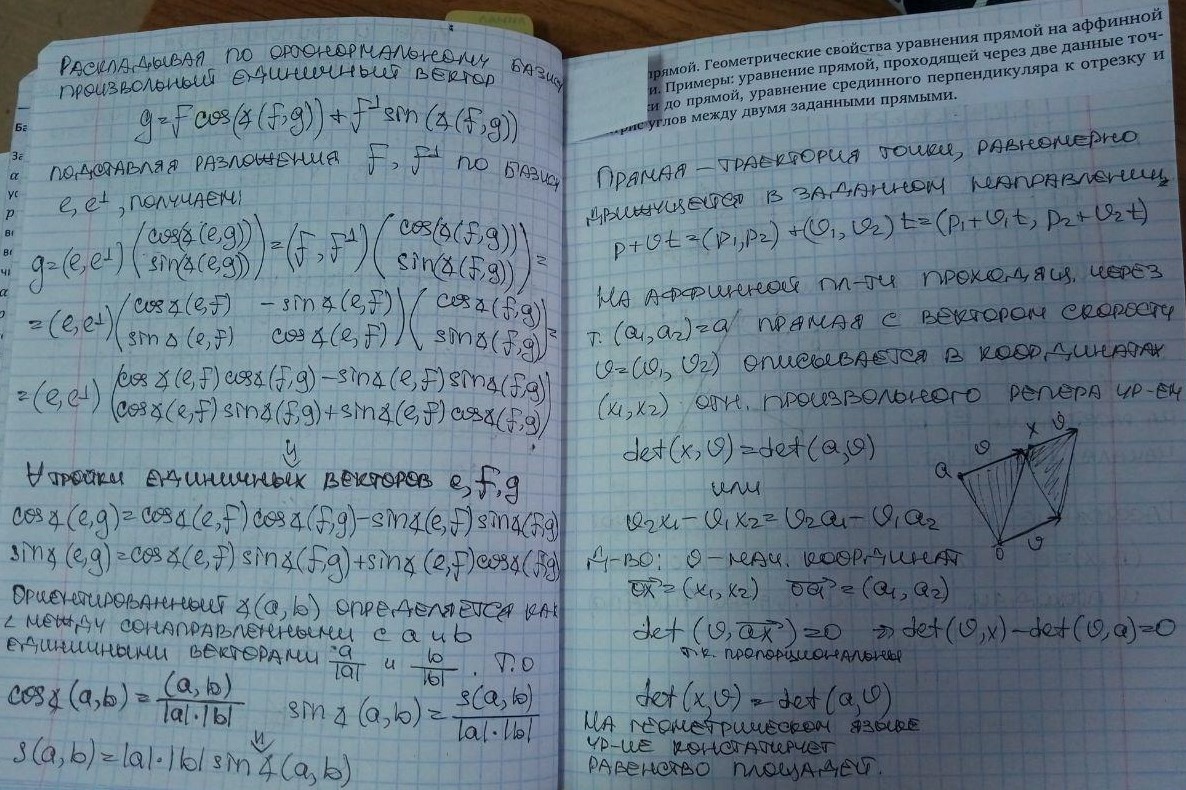 РАСКЛАДЫВАЯ ПО ОРТОНОРМАЛЬНОМУ БАЗИСУ
ПРОИЗВОЛЬНЫЙ ЕДИНИЧНЫЙ ВЕКТОР
g=f cos(∡(f,g)) + f^⊥ sin(∡(f,g))
ПОДСТАВЛЯЯ РАЗЛОЖЕНИЯ f, f^⊥ ПО БАЗИСУ
e, e^⊥, ПОЛУЧАЕМ
g=(e,e^⊥) (cos(∡(e,g)) sin(∡(e,g))) = (f, f^⊥) (cos(∡(f,g)) sin(∡(f,g))) =
=(e,e^⊥) (cos∡(e,f) -sin∡(e,f) sin∡(e,f) cos∡(e,f)) (cos∡(f,g) sin∡(f,g)) =
=(e,e^⊥) (cos∡(e,f) cos∡(f,g) - sin∡(e,f) sin∡(f,g) cos∡(e,f) sin∡(f,g) + sin∡(e,f) cos∡(f,g))
∀ тройки ЕДИНИЧНЫХ ВЕКТОРОВ e, f, g
cos∡(e,g)=cos∡(e,f) cos∡(f,g) - sin∡(e,f) sin∡(f,g)
sin∡(e,g)=cos∡(e,f) sin∡(f,g)+sin∡(e,f)cos∡(f,g)
ОРИЕНТИРОВАННЫЙ ∡(a,b) ОПРЕДЕЛЯЕТСЯ КАК
∠ МЕЖДУ СОНАПРАВЛЕННЫМИ С a и b
ЕДИНИЧНЫМИ ВЕКТОРАМИ a/|a| и b/|b|. Т.О
cos∡(a,b) = (a,b)/|a|·|b| sin∡(a,b) = s(a,b)/|a|·|b|
s(a,b)=|a|·|b| sin∡(a,b)
прямой. Геометрические свойства уравнения прямой на аффинной
и. Примеры: уравнение прямой, проходящей через две данные точ-
и до прямой, уравнение срединного перпендикуляра к отрезку и
рис углов между двумя заданными прямыми.
ПРЯМАЯ – ТРАЕКТОРИЯ ТОЧКИ, РАВНОМЕРНО
ДВИЖУЩЕЙСЯ В ЗАДАННОМ НАПРАВЛЕНИИ
p+vt=(p1,p2)+(v1,v2)t=(p1+v1t, p2+v2t)
НА АФФИННОЙ ПЛ-ТИ ПРОХОДЯЩ. ЧЕРЕЗ
т. (a1,a2)=a ПРЯМАЯ С ВЕКТОРОМ СКОРОСТИ
v=(v1, v2) ОПИСЫВАЕТСЯ В КООРДИНАТАХ
(x1,x2) ОТН. ПРОИЗВОЛЬНОГО РЕПЕРА УР-ЕМ
det(x,v)=det(a,v)
или
v2x1-v1x2=v2a1-v1a2
a v x v
0 v
Д-ВО: 0-НАЧ. КООРДИНАТ
0x=(x1,x2) 0a=(a1,a2)
det(v,ax)=0 ⇒ det(v,x)-det(v,a)=0
т.к. ПРОПОРЦИОНАЛЬНЫ
det(x,v)=det(a,v)
НА ГЕОМЕТРИЧЕСКОМ ЯЗЫКЕ
УР-ИЕ КОНСТАТИРУЕТ
РАВЕНСТВО ПЛОЩАДЕЙ.